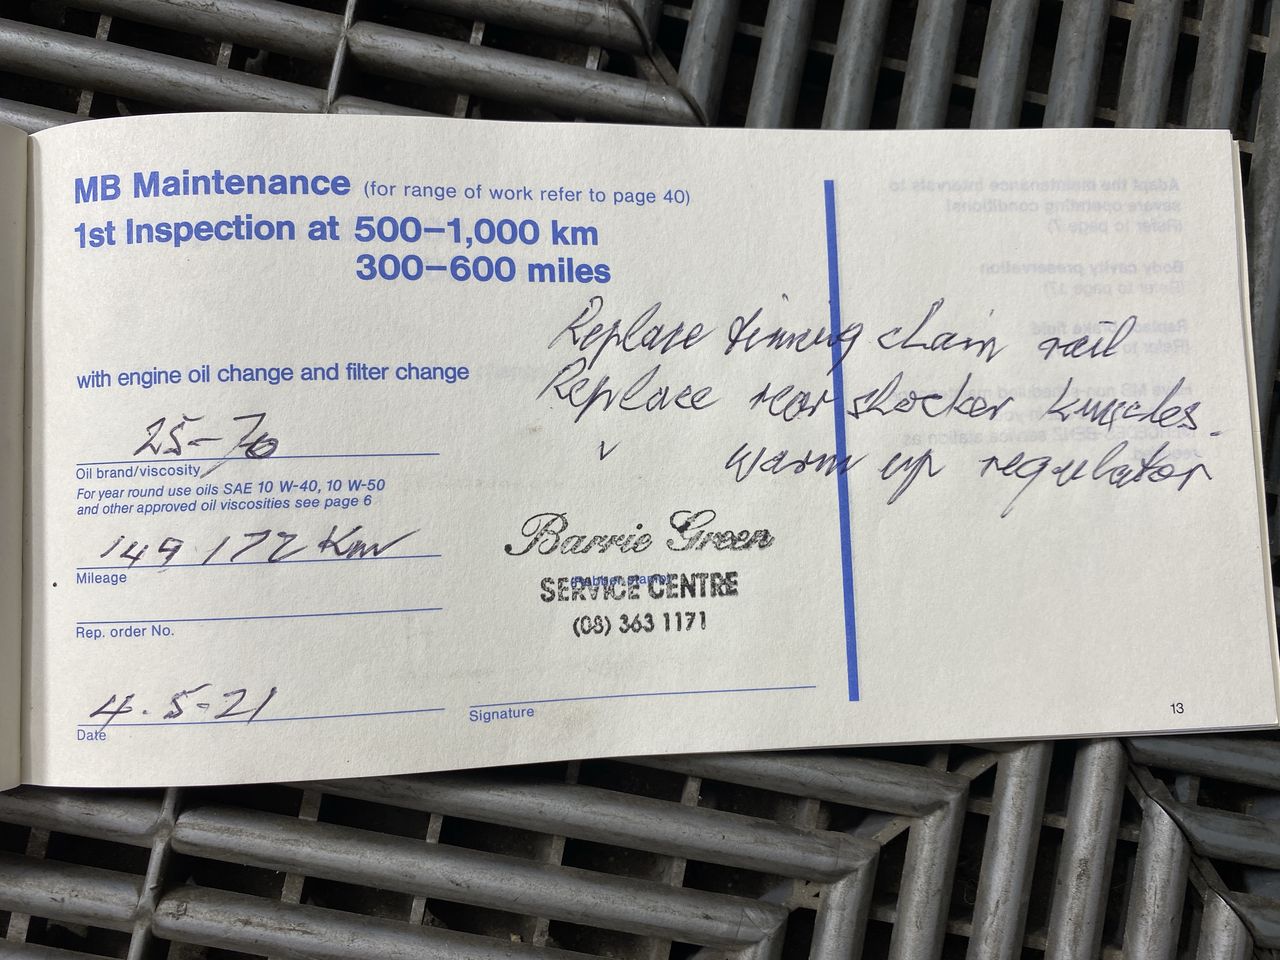 MB Maintenance (for range of work refer to page 40)
1st Inspection at 500–1,000 km
300–600 miles
Replace timing chain rail
with engine oil change and filter change
Replace rear shocker knuckles.
25-70
" warm up regulator
Oil brand/viscosity
For year round use oils SAE 10 W-40, 10 W-50
and other approved oil viscosities see page 6
149 172 Km
Barrie Green
Mileage
SERVICE CENTRE
(08) 363 1171
Rep. order No.
4.5-21
Date
Signature
13